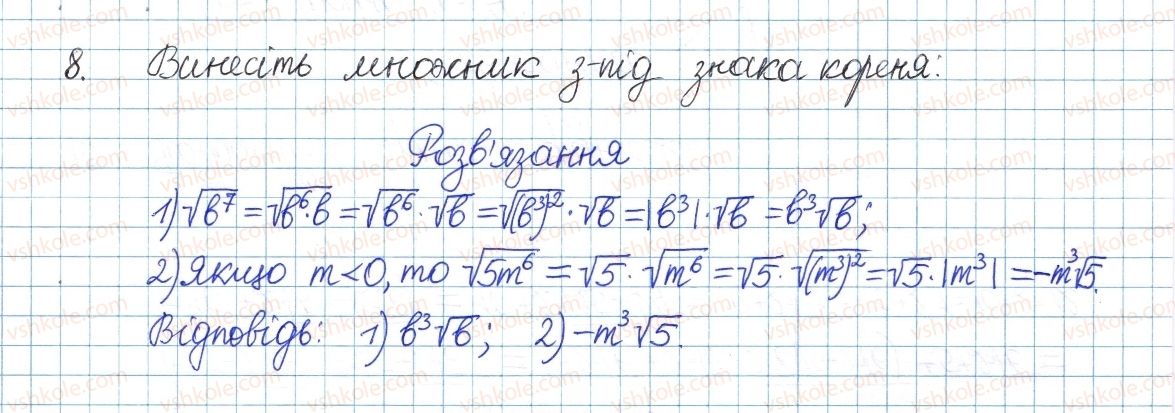 8. Винесіть множник з-під знака кореня:
Розв'язання
1) √b⁷ = √b⁶·b = √b⁶ · √b = √(b³)² · √b = |b³| · √b = b³√b;
2) Якщо m<0, то √5m⁶ = √5 · √m⁶ = √5 · √(m³)² = √5 · |m³| = -m³√5.
Відповідь: 1) b³√b; 2) -m³√5.